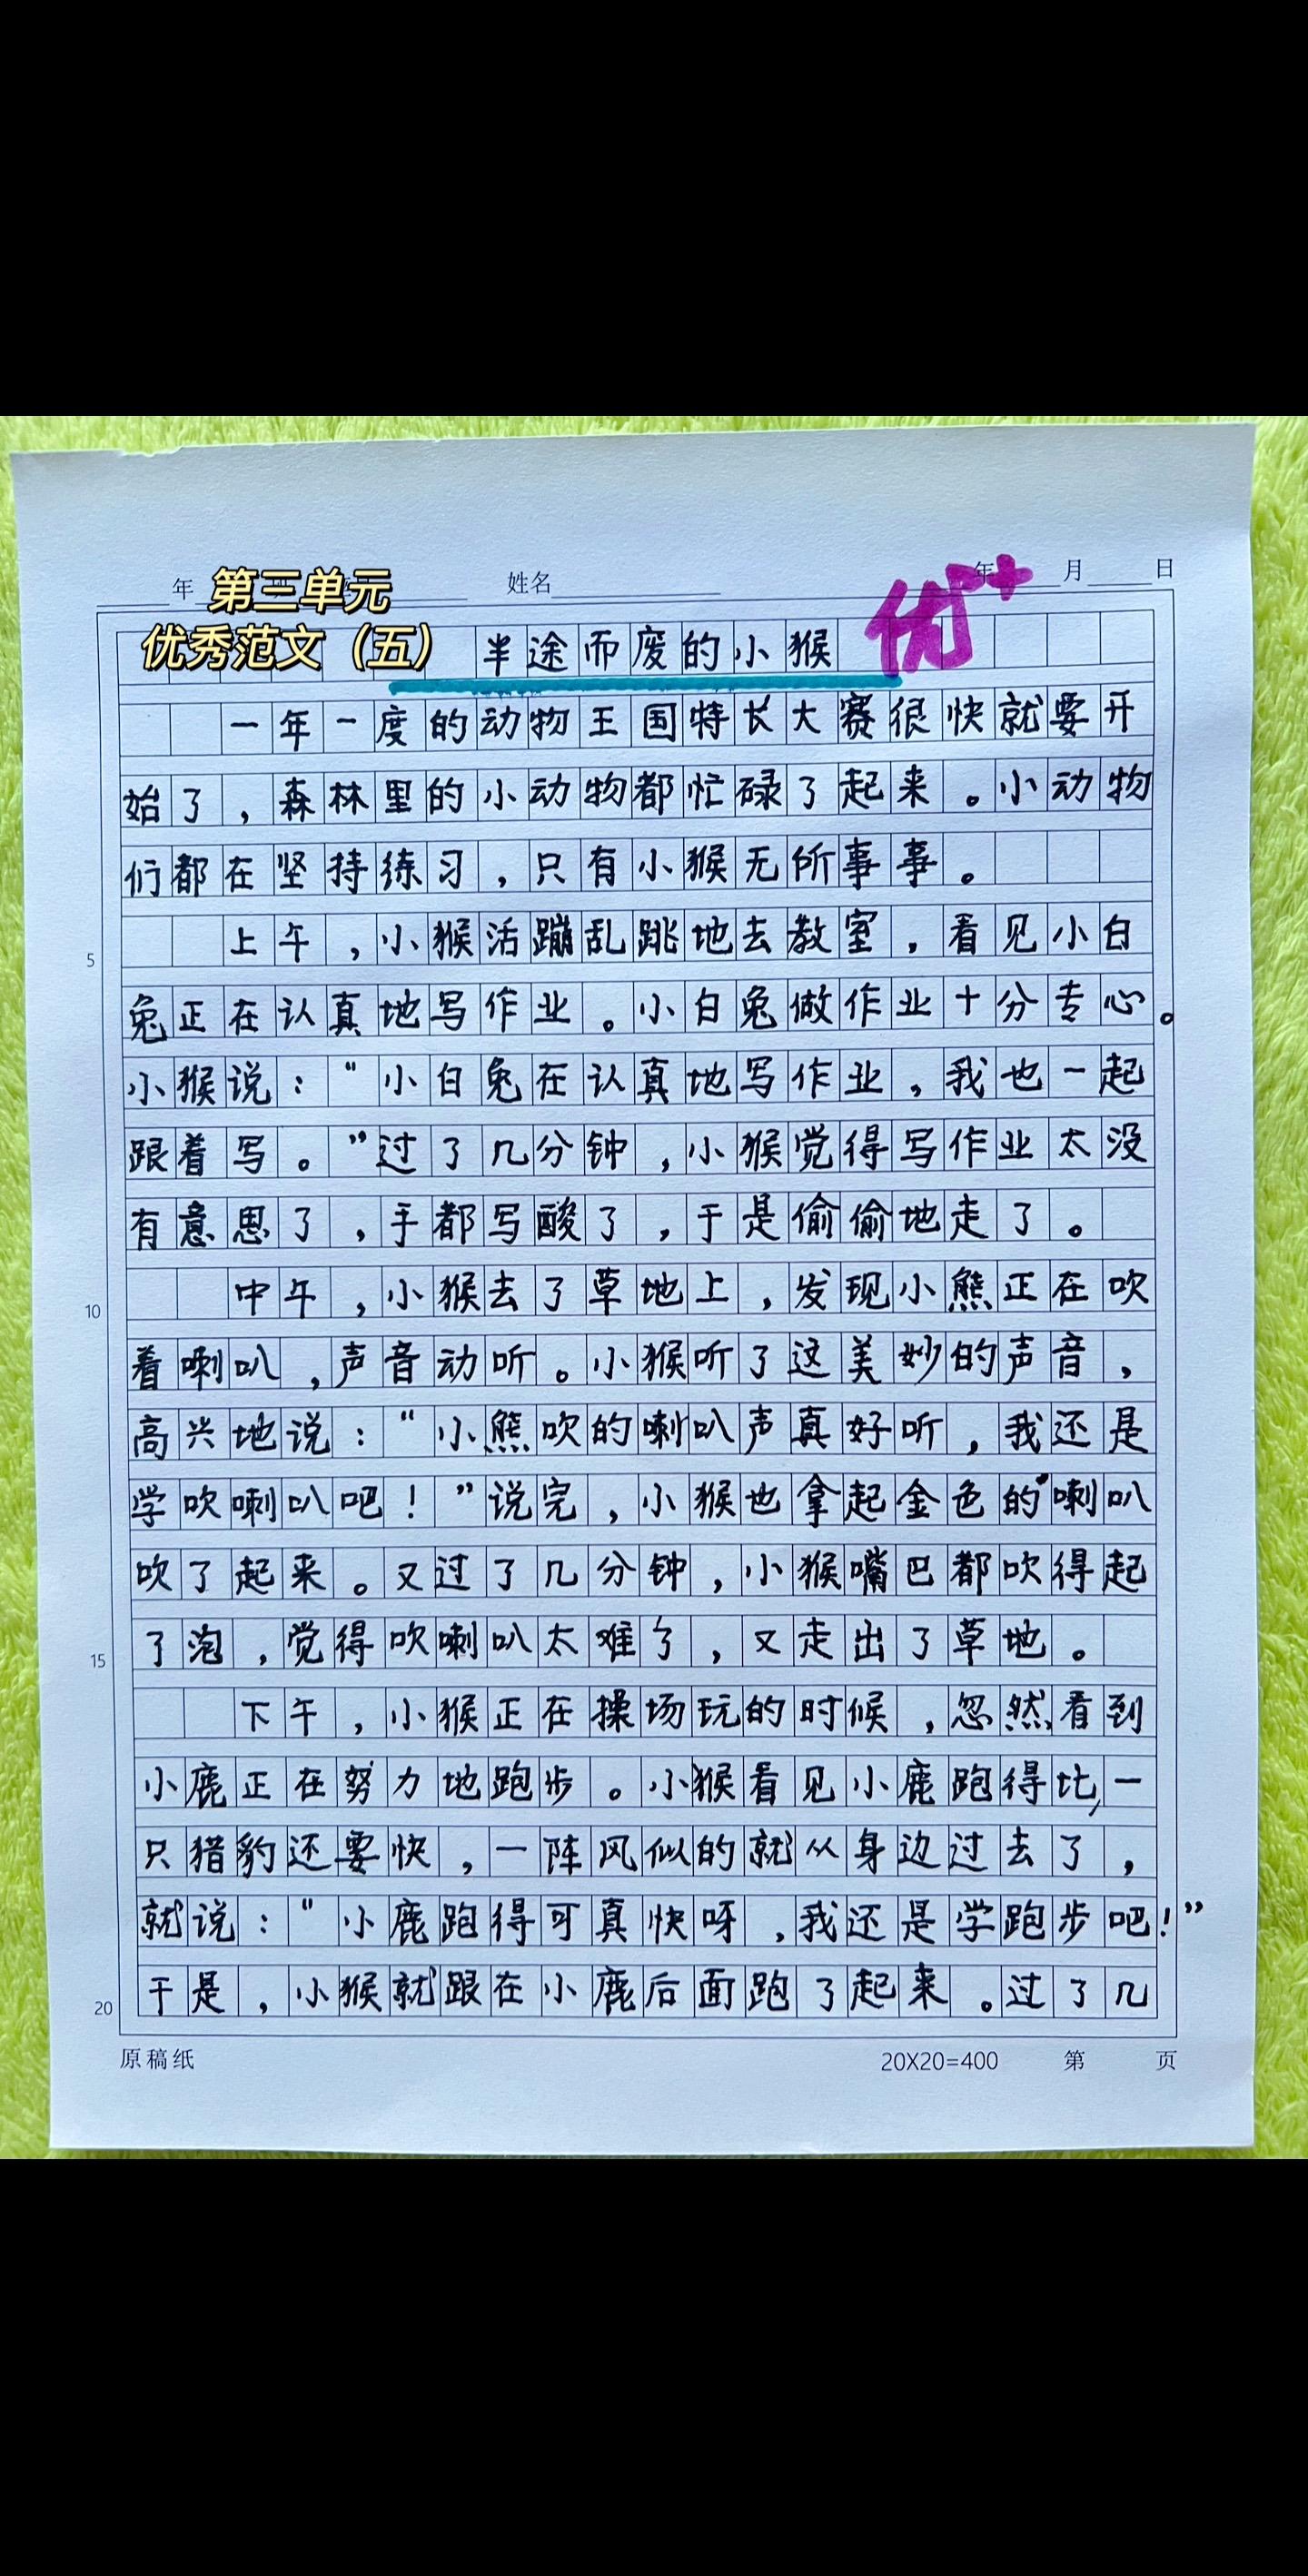 年 第三单元 姓名 年 月 日
优秀范文（五） 半途而废的小猴 优+
一年一度的动物王国特长大赛很快就要开
始了，森林里的小动物都忙碌了起来。小动物
们都在坚持练习，只有小猴无所事事。
上午，小猴活蹦乱跳地去教室，看见小白
5
兔正在认真地写作业。小白兔做作业十分专心。
小猴说：“小白兔在认真地写作业，我也一起
跟着写。”过了几分钟，小猴觉得写作业太没
有意思了，手都写酸了，于是偷偷地走了。
中午，小猴去了草地上，发现小熊正在吹
10
着喇叭，声音动听。小猴听了这美妙的声音，
高兴地说：“小熊吹的喇叭声真好听，我还是
学吹喇叭吧！”说完，小猴也拿起金色的喇叭
吹了起来。又过了几分钟，小猴嘴巴都吹得起
了泡，觉得吹喇叭太难了，又走出了草地。
15
下午，小猴正在操场玩的时候，忽然看到
小鹿正在努力地跑步。小猴看见小鹿跑得比一
只猎豹还要快，一阵风似的就从身边过去了，
就说：“小鹿跑得可真快呀，我还是学跑步吧！”
于是，小猴就跟在小鹿后面跑了起来。过了几
20
原稿纸 20X20=400 第 页